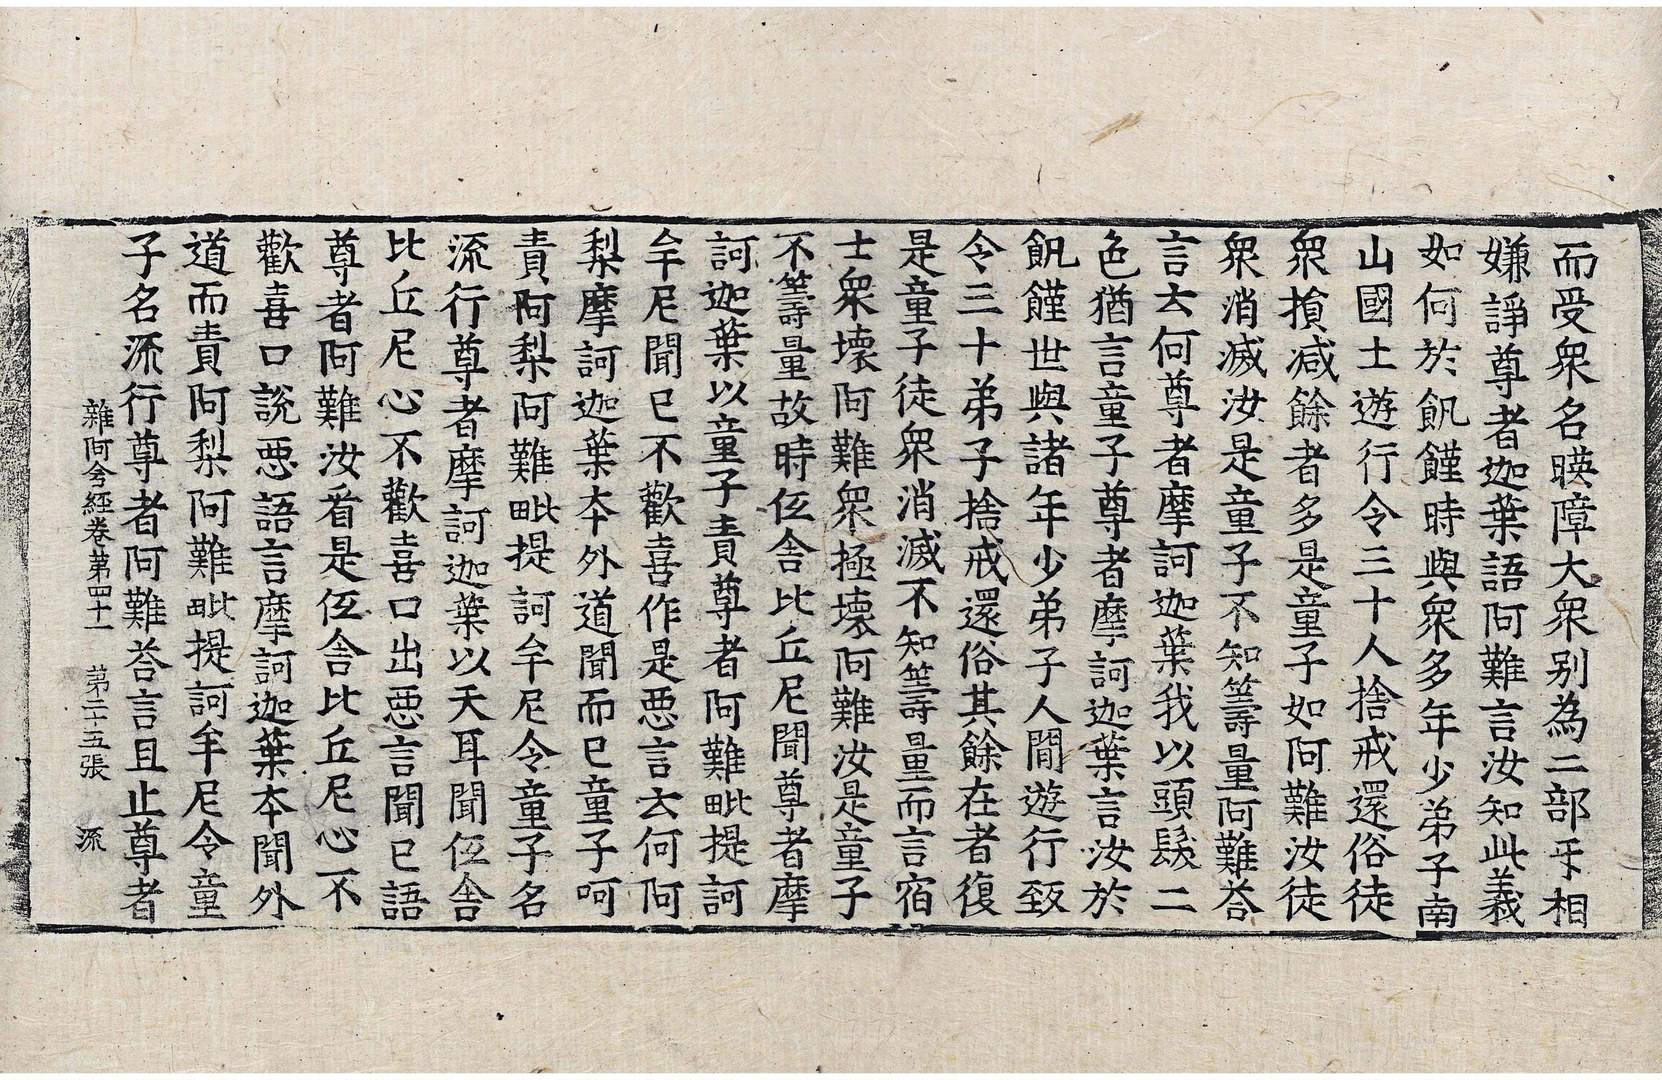 而受衆名暎障大衆别為二部乐相
嫌諍尊者迦葉語阿難言汝知此義
如何於飢饉時與衆多年少弟子南
山國土遊行令三十人捨戒還俗徒
衆損减餘者多是童子如阿難汝徒
衆消滅汝是童子不知籌量阿難荅
言云何尊者摩訶迦葉我以頭髮二
色猶言童子尊者摩訶迦葉言汝於
飢饉世與諸年少弟子人間遊行致
令三十弟子捨戒還俗其餘在者復
是童子徒衆消滅不知籌量而言宿
士衆壞阿難衆極壞阿難汝是童子
不籌量故時伍舍比丘尼聞尊者摩
訶迦葉以童子責尊者阿難毗提訶
牟尼聞已不歡喜作是悪言云何阿
梨摩訶迦葉夲外道聞而已童子呵
責阿梨阿難毗提訶牟尼令童子名
流行尊者摩訶迦葉以天耳聞伍舍
比丘尼心不歡喜口出悪言聞已語
尊者阿難汝看是伍舍比丘尼心不
歡喜口說悪語言摩訶迦葉夲聞外
道而責阿梨阿難毗提訶牟尼令童
子名流行尊者阿難荅言且止尊者
雜阿含經卷第四十一 第二十五張 流